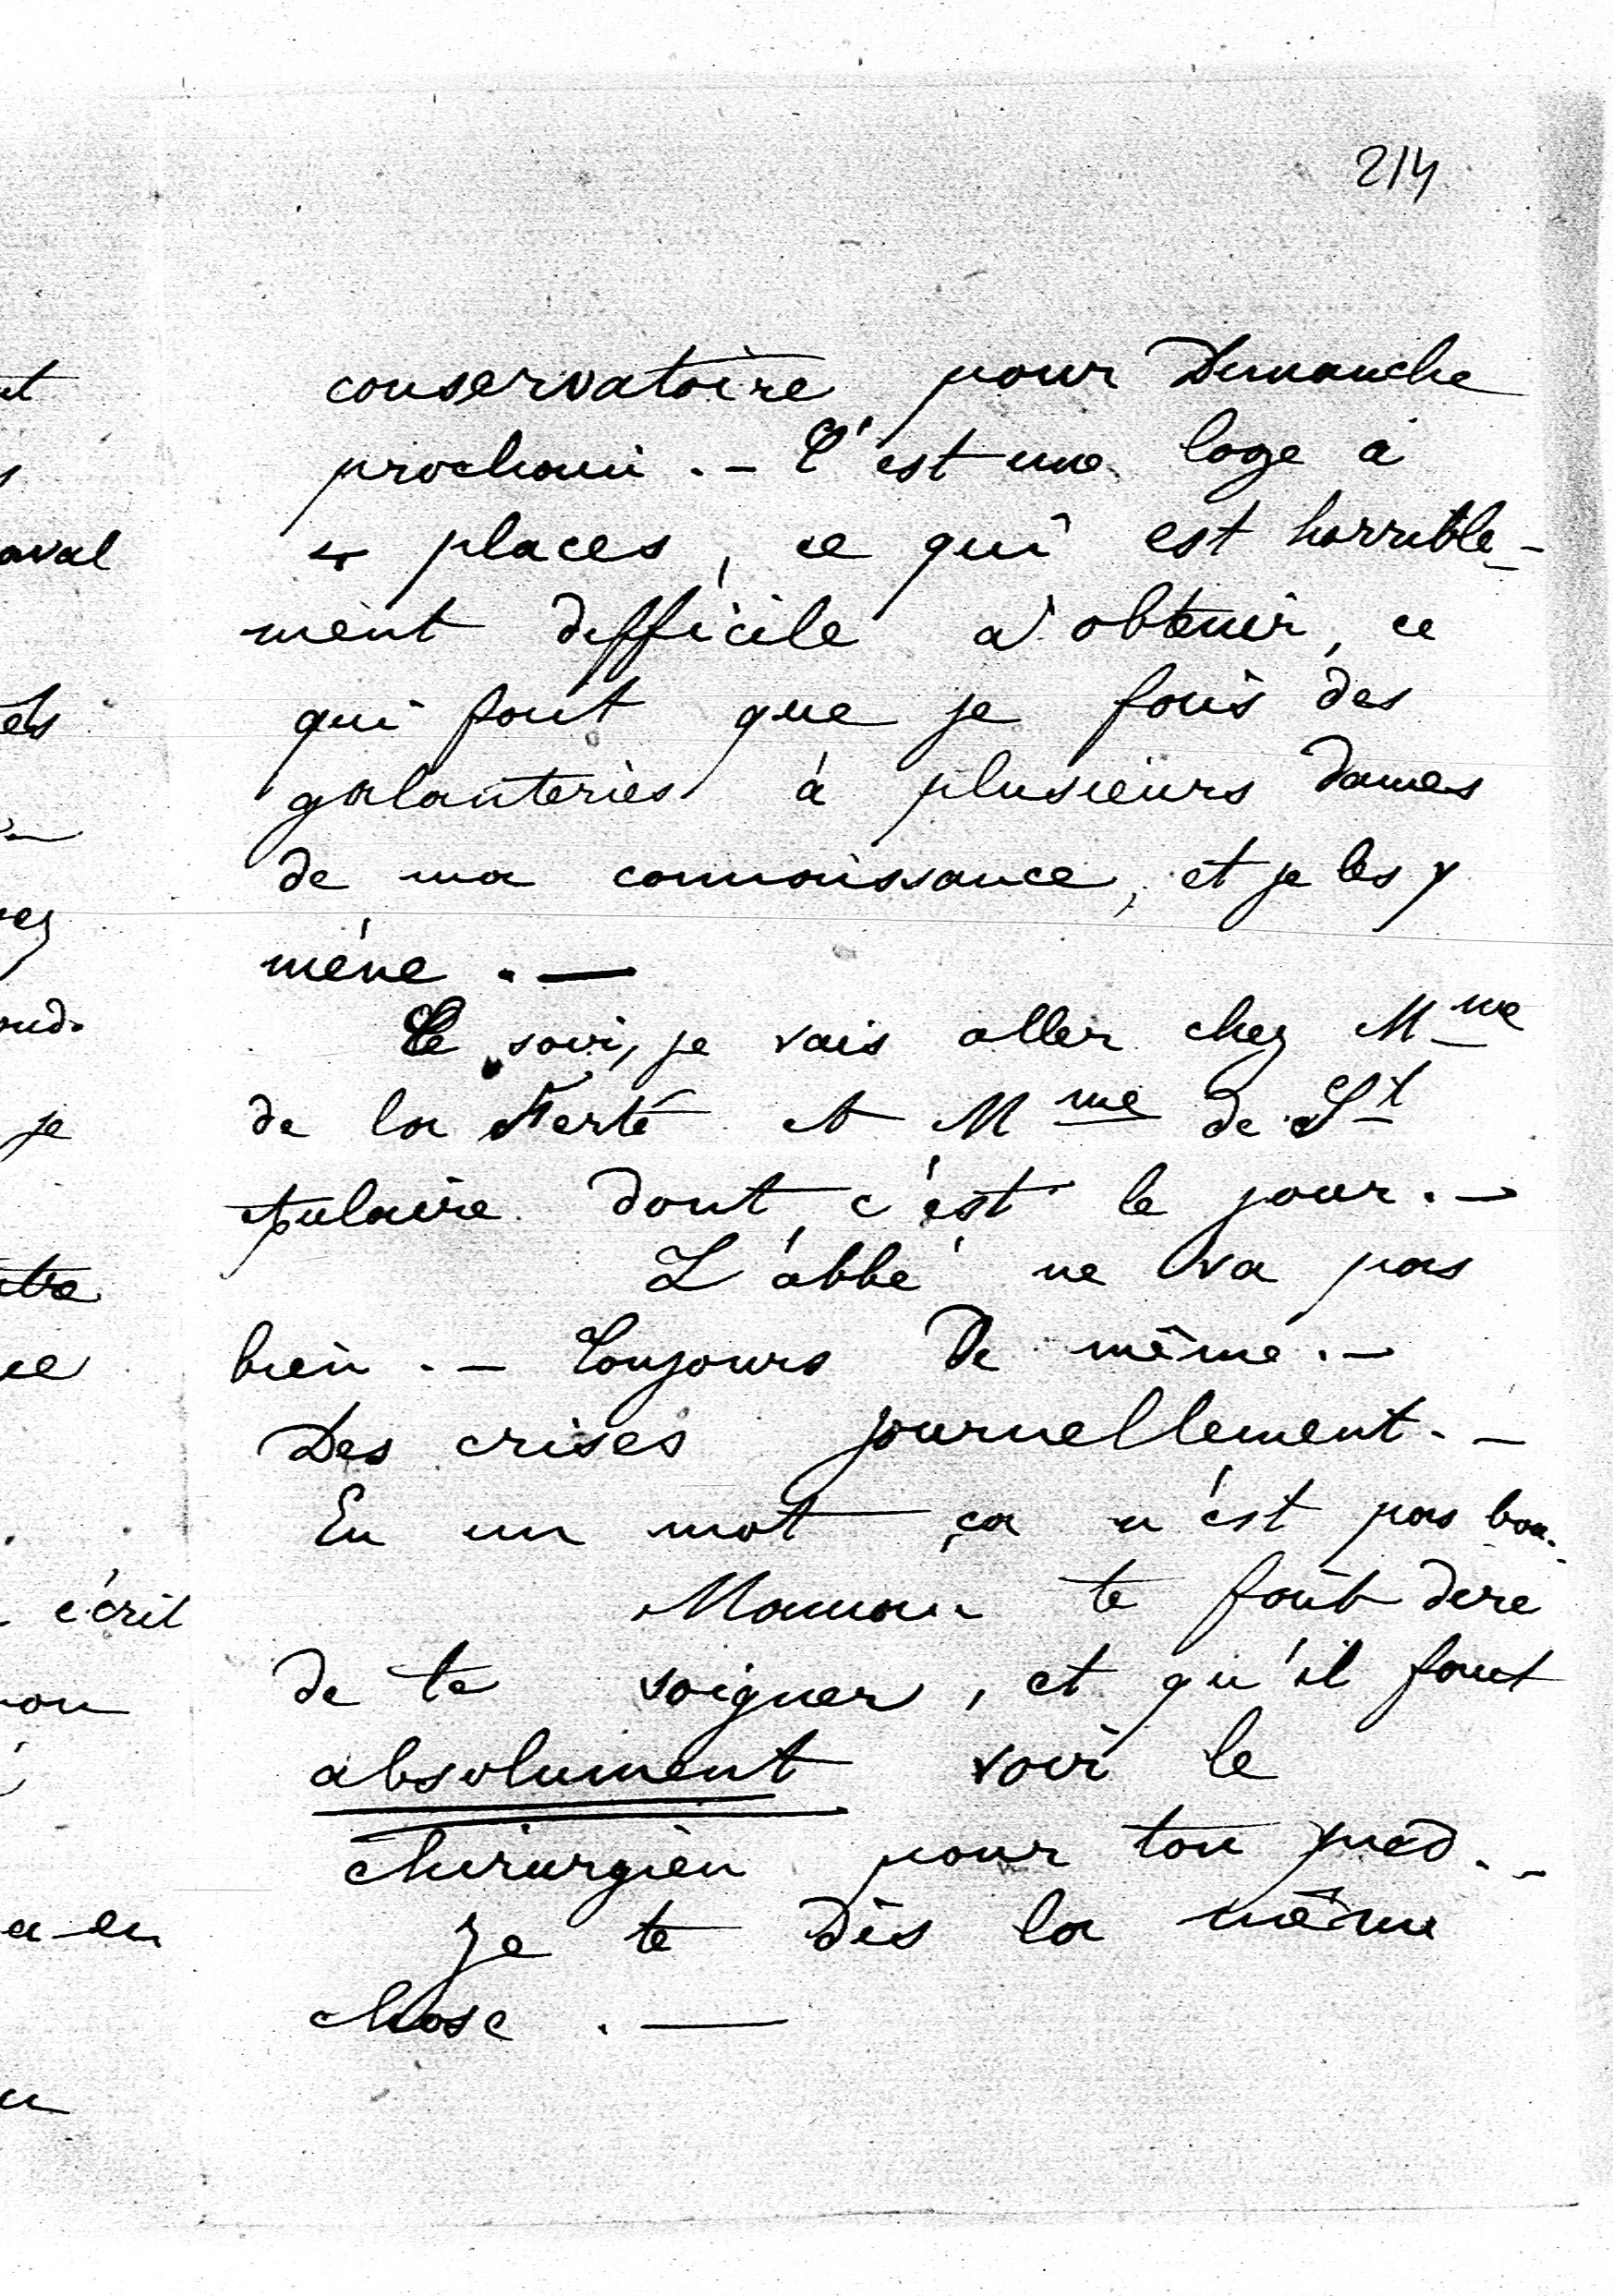 214
conservatoire pour Dimanche
prochain . – C'est une loge à
4 places, ce qui est horrible-
ment difficile à obtenir, ce
qui fait que je fais des
galanteries à plusieurs dames
de ma connaissance, et je les y
mène . —
Ce soir, je vais aller chez Mme
de la Ferté et Mme de St
pulaire dont c'est le jour. –
L'abbé ne va pas
bien . – Toujours de même. –
Des crises journellement. –
En un mot ça n'est pas bon.
Maman te fait dire
de te soigner, et qu'il faut
absolument voir le
chirurgien pour ton pied. –
Je te dis la même
chose . —